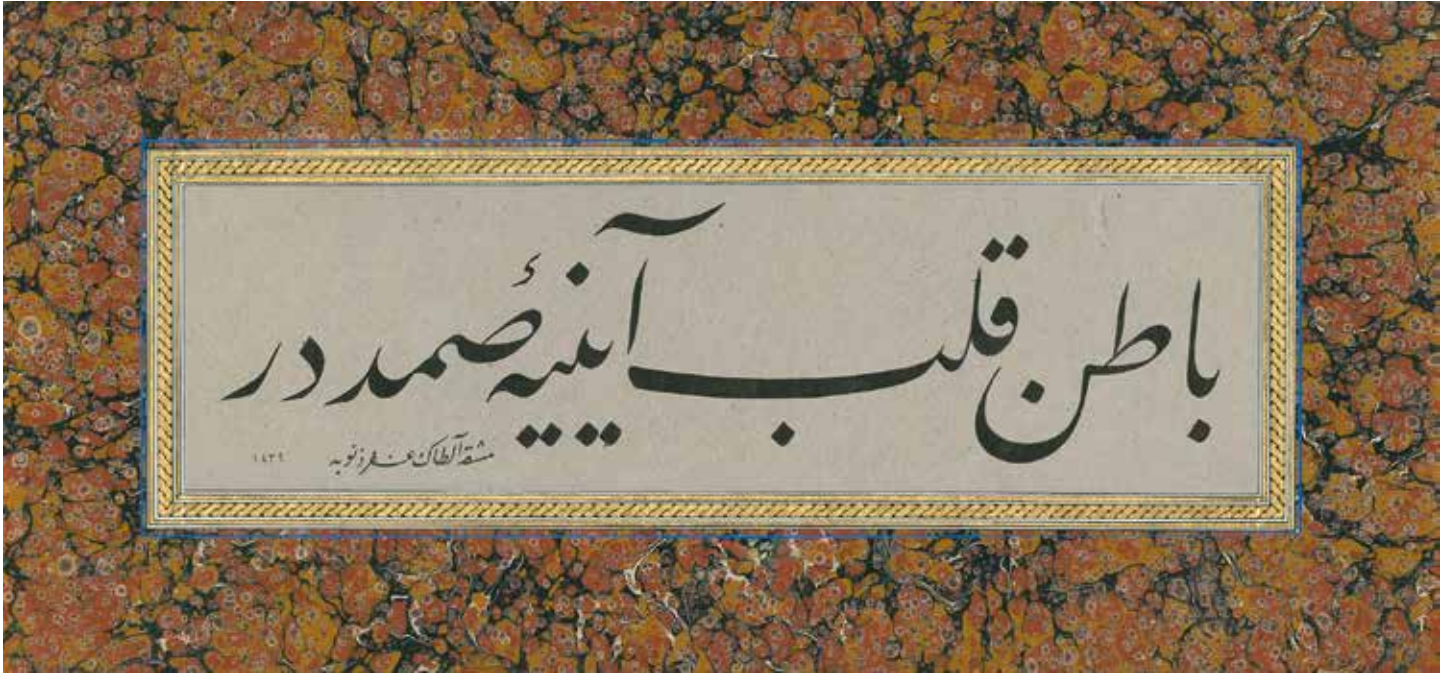 باطن قلب آیینهٔ صمددر
مشقه آلطاك غفر ذنوبه ١٤٣٩